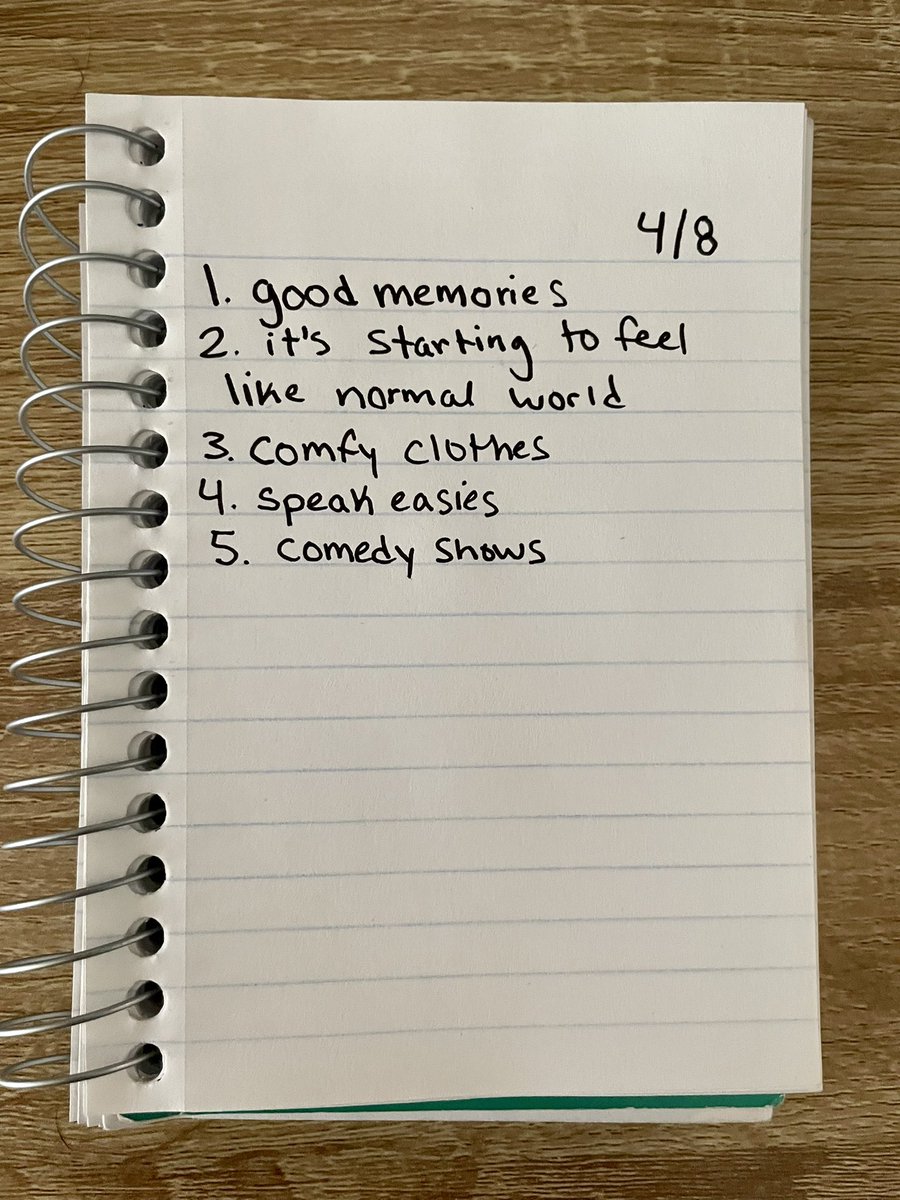 4/8
1. good memories
2. it's starting to feel
like normal world
3. comfy clothes
4. speak easies
5. comedy shows